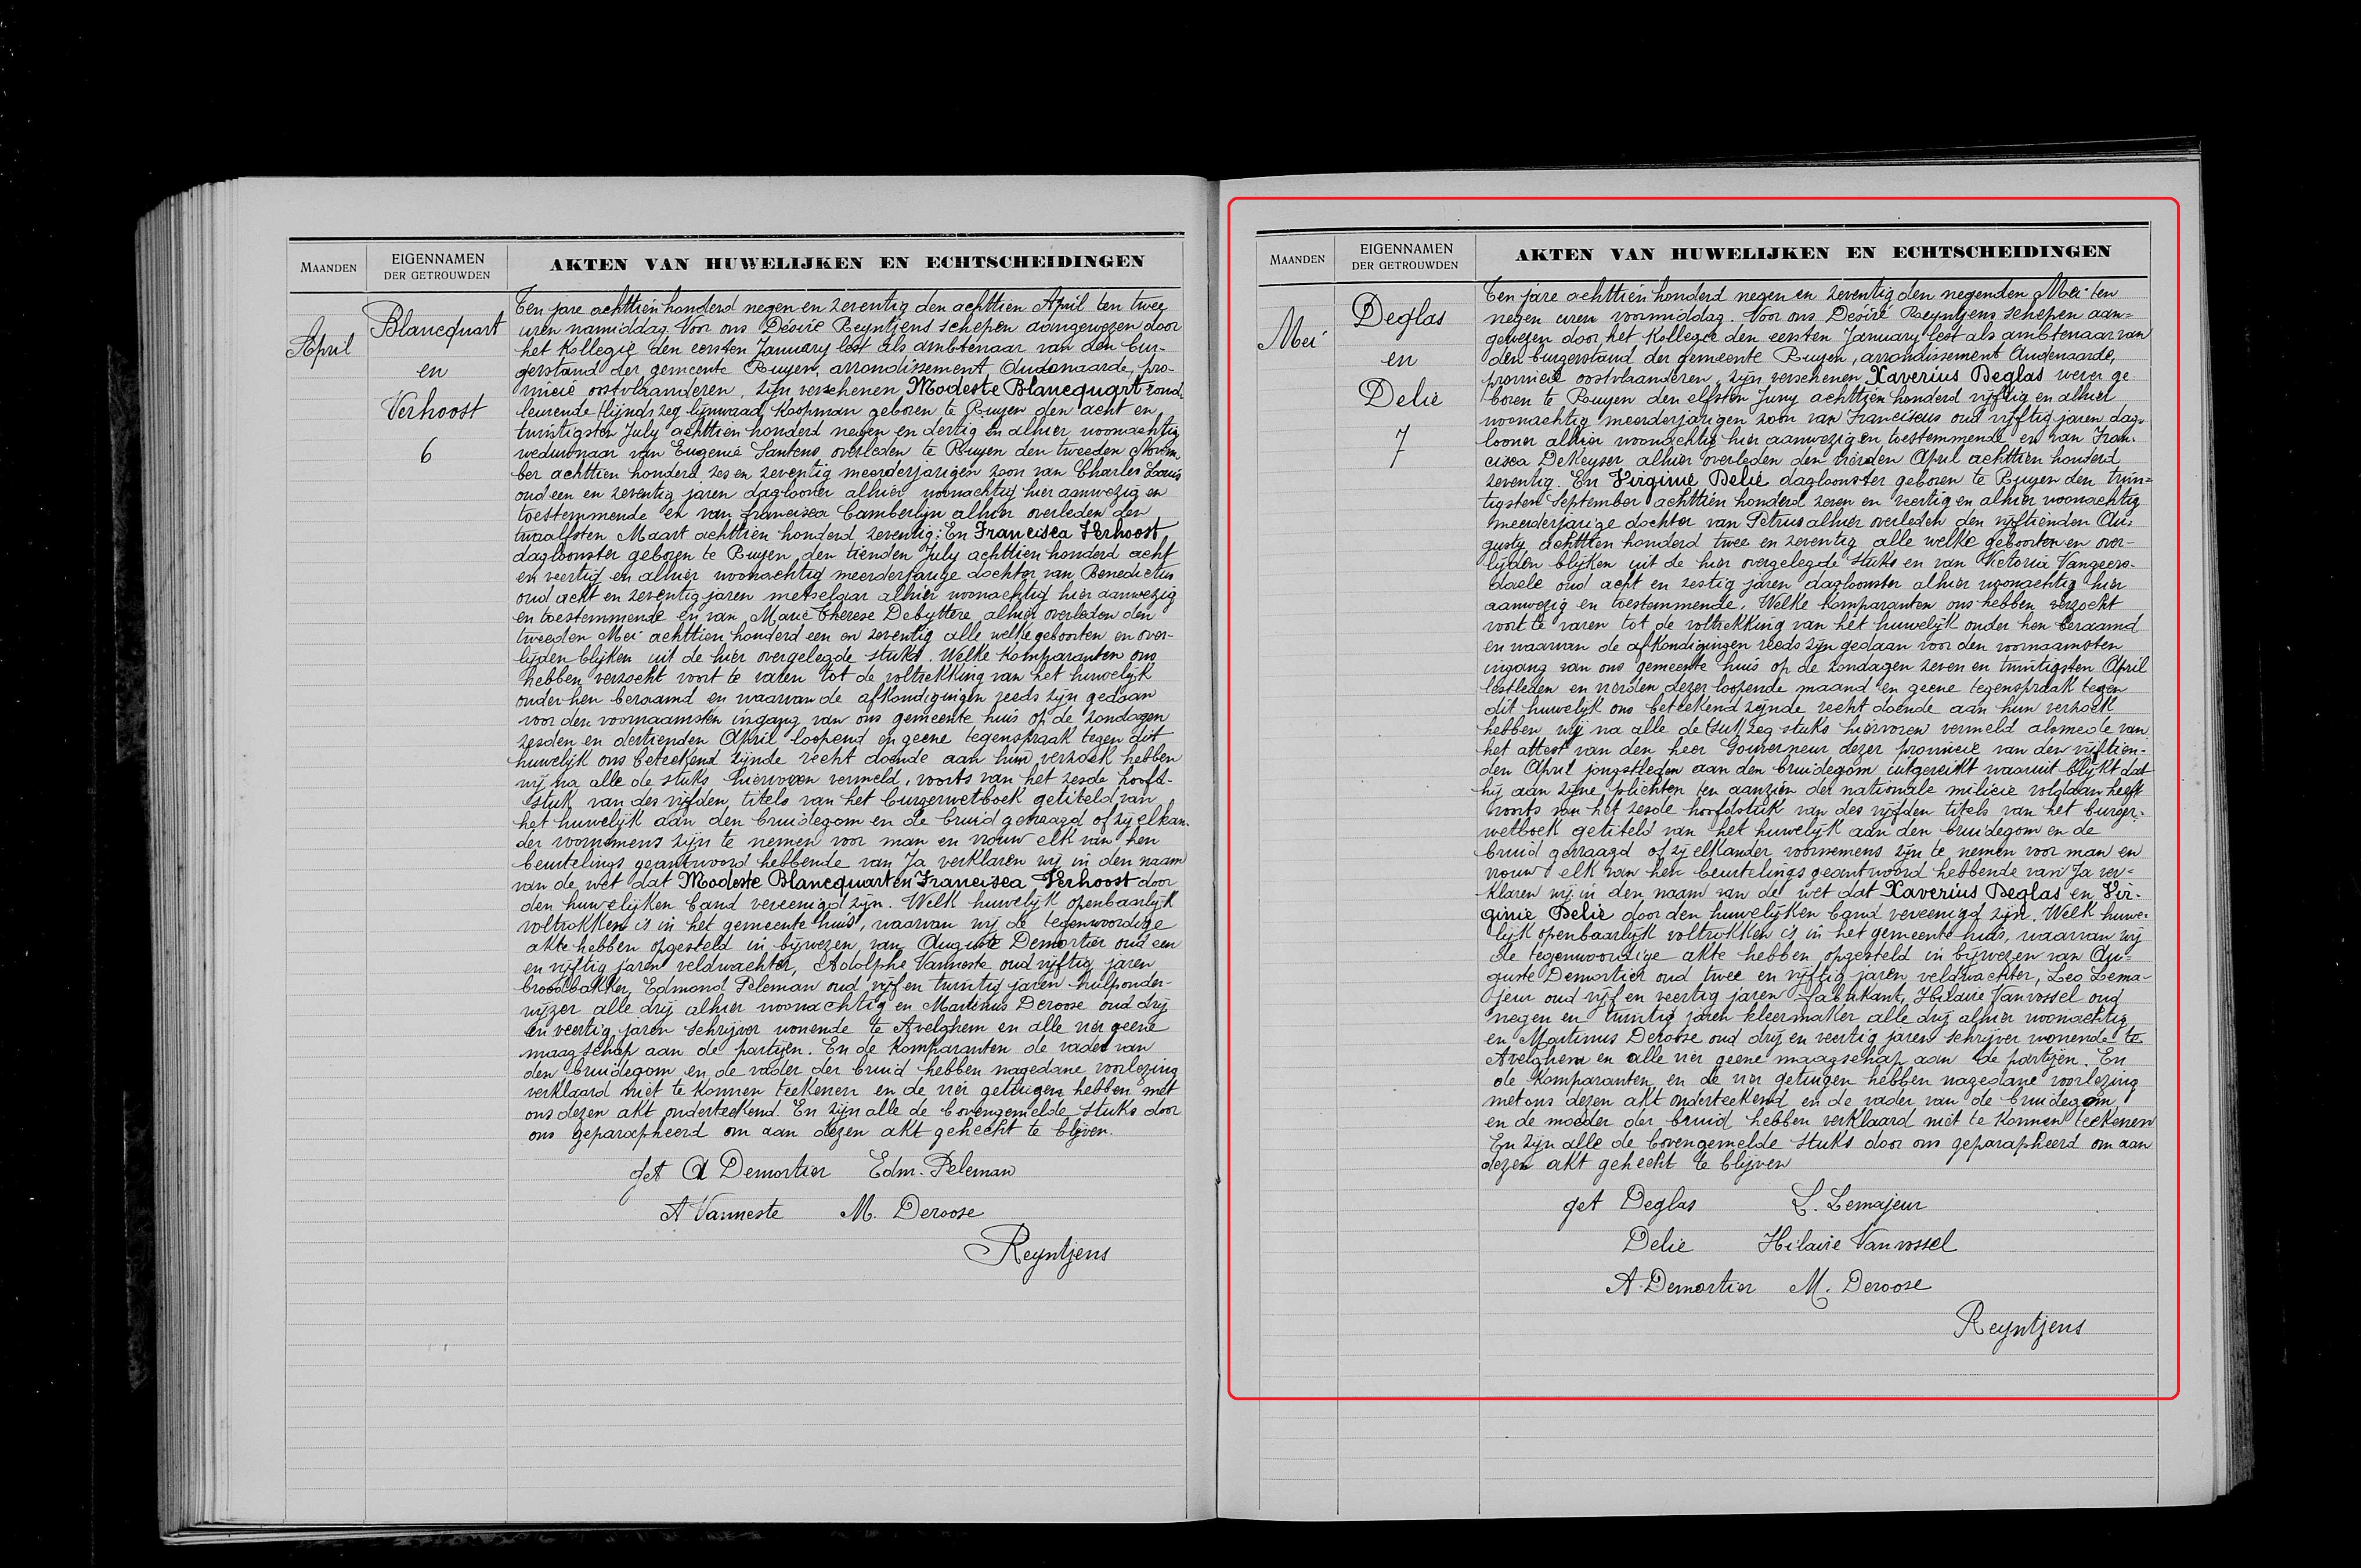 MAANDEN
EIGENNAMEN
DER GETROUWDEN
AKTEN VAN HUWELIJKEN EN ECHTSCHEIDINGEN
April
Blancquart
en
Verhoost
6
Ten jare achttien honderd negen en zeventig den achttien April ten twee
uren namiddag. Voor ons Désiré Reyntjens schepen aangewezen door
het Kollegie den eersten January lest als ambtenaar van den bur-
gerstand der gemeente Ruyen, arrondissement Audenaarde, pro-
vincie oostvlaanderen, zijn verschenen Modeste Blancquart rond
leurende Koopman geboren te Ruyen den acht en
twintigsten July achttien honderd negen en dertig en alhier woonachtig
weduwnaar van Eugenie Santens overleden te Ruyen den tweeden Novem
ber achttien honderd zes en zeventig meerderjarigen zoon van Charles Louis
oud een en zeventig jaren daglooner alhier woonachtig hier aanwezig en
toestemmende en van francisca Camberlyn alhier overleden den
twaalfsten Maart achttien honderd zeventig: En Francisca Verhoost
dagloonster geboren te Ruyen den tienden July achttien honderd acht
en veertig en alhier woonachtig meerderjarige dochter van Benedictus
oud acht en zeventig jaren metselaar alhier woonachtig hier aanwezig
en toestemmende en van Marie Therese Debyttere alhier overleden den
tweeden Mei achttien honderd een en zeventig alle welke geboorten en over-
lijden blijken uit de hier overgelegde stuks. Welke Komparanten ons
hebben verzocht voort te varen tot de voltrekking van het huwelijk
onder hen beraamd en waarvan de afkondigingen reeds zijn gedaan
voor den voornaamsten ingang van ons gemeente huis op de zondagen
zesden en dertienden April loopend en geene tegenspraak tegen dit
huwelijk ons beteekend zijnde recht doende aan hun verzoek hebben
wij na alle de stuks hiervoren vermeld, voorts van het zesde hoofd-
stuk van des vijfden titels van het burgerwetboek getiteld van
het huwelijk aan den bruidegom en de bruid gevraagd of zij elkan-
der voornemens zijn te nemen voor man en vrouw elk van hen
beurtelings geantwoord hebbende van Ja verklaren wij in den naam
van de wet dat Modeste Blancquart en Francisca Verhoost door
den huwelijken band vereenigd zijn. Welk huwelijk openbaarlijk
voltrokken is in het gemeente huis, waarvan wij de tegenwoordige
akte hebben opgesteld in bijwezen van Auguste Demortier oud een
en vijftig jaren veldwachter, Adolphe Vanneste oud vijftig jaren
broodbakker, Edmond Peleman oud vijf en twintig jaren hulponder-
wijzer alle drij alhier woonachtig en Martinus Deroose oud drij
en veertig jaren schrijver wonende te Avelghem en alle vier geene
maagschap aan de partijen. En de Komparanten de vader van
den bruidegom en de vader der bruid hebben nagedane voorlezing
verklaard niet te konnen teekenen en de vier getuigen hebben met
ons dezen akt onderteekend. En zijn alle de bovengemelde stuks door
ons geparapheerd om aan dezen akt gehecht te blijven.
get A Demortier Edm. Peleman
A Vanneste M. Deroose
Reyntjens
MAANDEN
EIGENNAMEN
DER GETROUWDEN
AKTEN VAN HUWELIJKEN EN ECHTSCHEIDINGEN
Mei
Deglas
en
Delie
7
Ten jare achttien honderd negen en zeventig den negenden Mei ten
negen uren voormiddag. Voor ons Désiré Reyntjens schepen aan-
gewezen door het Kollegie den eersten January lest als ambtenaar van
den burgerstand der gemeente Ruyen, arrondissement Audenaarde,
provincie oostvlaanderen, zijn verschenen Xaverius Deglas wever ge-
boren te Ruyen den elfsten Juny achttien honderd vijftig en alhier
woonachtig meerderjarigen zoon van Franciscus oud vijftig jaren dag-
looner alhier woonachtig hier aanwezig en toestemmende en van Fran-
cisca DeKeyser alhier overleden den vierden April achttien honderd
zeventig. En Virginie Delie dagloonster geboren te Ruyen den twin-
tigsten September achttien honderd zeven en veertig en alhier woonachtig
meerderjarige dochter van Petrus alhier overleden den vijftienden Au-
gusty achttien honderd twee en zeventig alle welke geboorten en over-
lijden blijken uit de hier overgelegde stuks en van Victoria Vangeers-
daele oud acht en zestig jaren dagloonster alhier woonachtig hier
aanwezig en toestemmende. Welke Komparanten ons hebben verzocht
voort te varen tot de voltrekking van het huwelijk onder hen beraamd
en waarvan de afkondigingen reeds zijn gedaan voor den voornaamsten
ingang van ons gemeente huis op de zondagen zeven en twintigsten April
lestleden en vierden dezer loopende maand en geene tegenspraak tegen
dit huwelijk ons beteekend zijnde recht doende aan hun verzoek
hebben wij na alle de stuks hiervoren vermeld alsmede van
het attest van den heer Gouverneur dezer provincie van den vijftien-
den April jongstleden aan den bruidegom uitgereikt waaruit blijkt dat
hij aan zijne plichten ten aanzien der nationale milicie voldaan heeft
voorts van het zesde hoofdstuk van des vijfden titels van het burger-
wetboek getiteld van het huwelijk aan den bruidegom en de
bruid gevraagd of zij elkander voornemens zijn te nemen voor man en
vrouw elk van hen beurtelings geantwoord hebbende van Ja ver-
klaren wij in den naam van de wet dat Xaverius Deglas en Vir-
ginie Delie door den huwelijken band vereenigd zijn. Welk huwe-
lijk openbaarlijk voltrokken is in het gemeente huis, waarvan wij
de tegenwoordige akte hebben opgesteld in bijwezen van Au-
guste Demortier oud twee en vijftig jaren veldwachter, Leo Lema-
jeur oud vijf en veertig jaren fabrikant, Hilaire Vanvossel oud
negen en twintig jaren kleermaker alle drij alhier woonachtig
en Martinus Deroose oud drij en veertig jaren schrijver wonende te
Avelghem en alle vier geene maagschap aan de partijen. En
de Komparanten en de vier getuigen hebben nagedane voorlezing
met ons dezen akt onderteekend en de vader van de bruidegom
en de moeder der bruid hebben verklaard niet te konnen teekenen
En zijn alle de bovengemelde stuks door ons geparapheerd om aan
dezen akt gehecht te blijven
get Deglas L. Lemajeur
Delie Hilaire Vanvossel
A. Demortier M. Deroose
Reyntjens